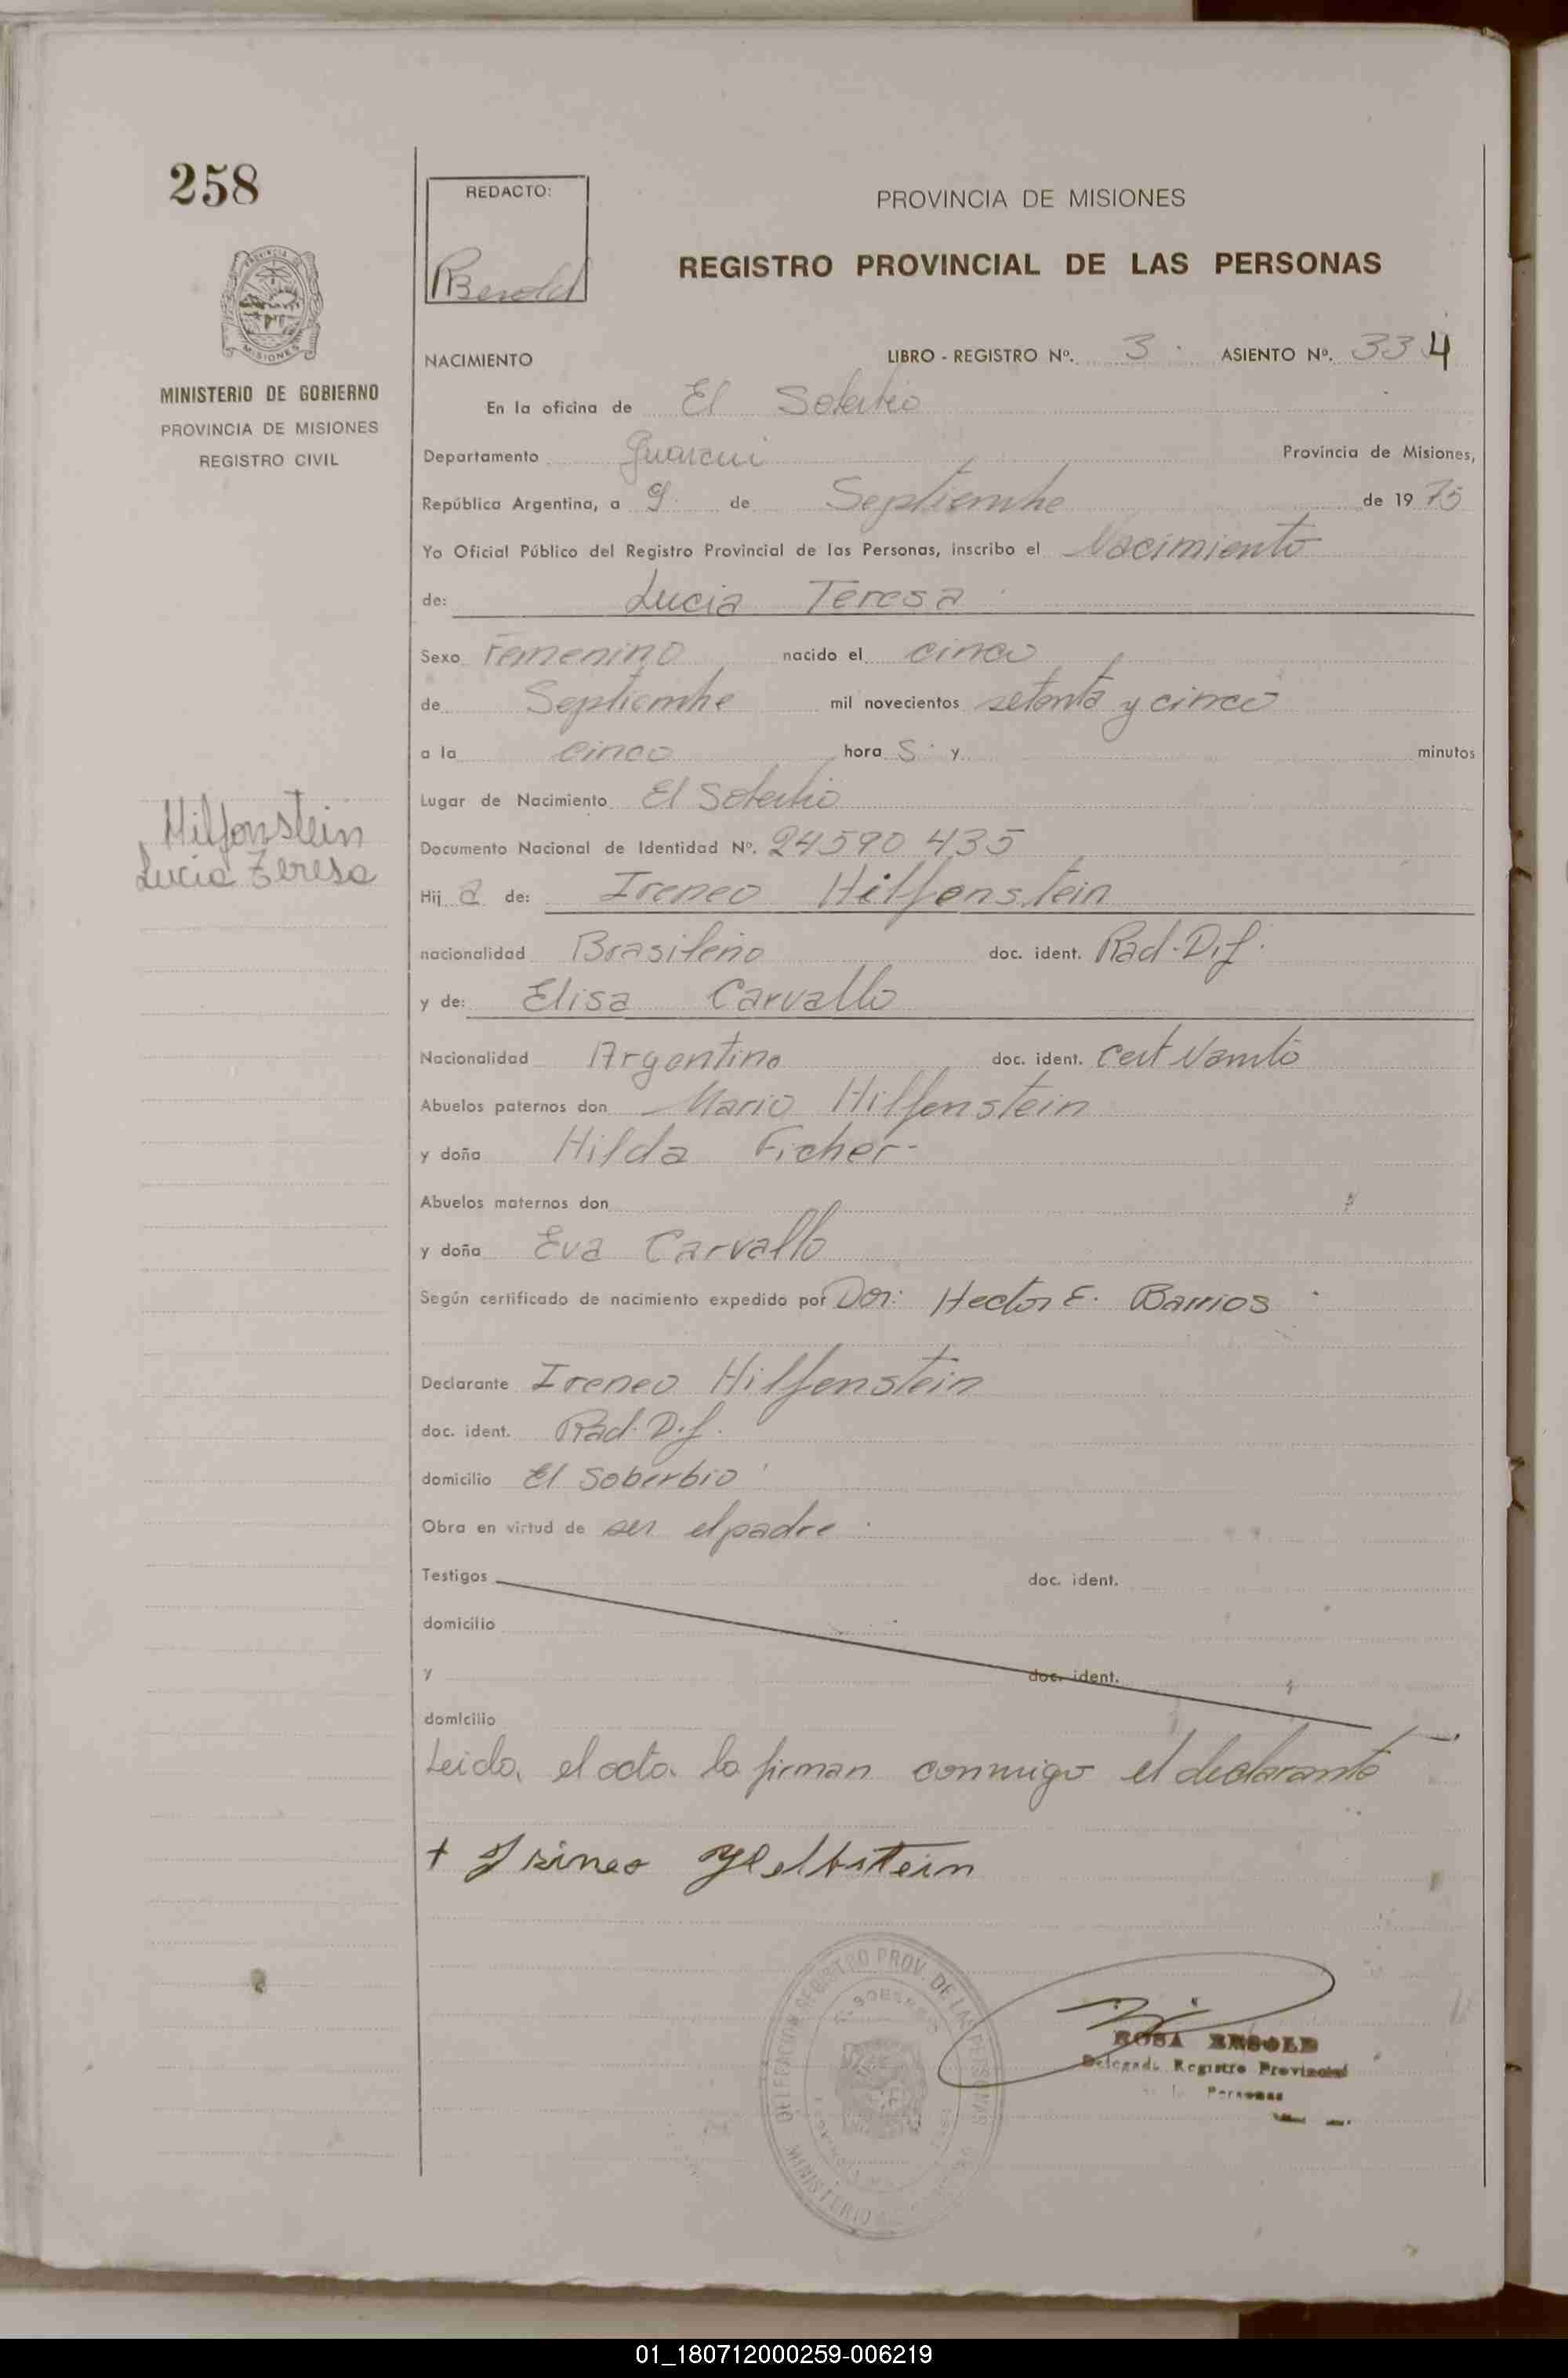 258
REDACTO:
RBesold
PROVINCIA DE MISIONES
REGISTRO PROVINCIAL DE LAS PERSONAS
MISIONES
MINISTERIO DE GOBIERNO
PROVINCIA DE MISIONES
REGISTRO CIVIL
NACIMIENTO LIBRO - REGISTRO Nº. 3 ASIENTO Nº. 334
En la oficina de El Soberbio
Departamento Guarani Provincia de Misiones,
República Argentina, a 9 de Septiembre de 1975
Yo Oficial Público del Registro Provincial de las Personas, inscribo el Nacimiento
de: Lucia Teresa
Sexo Femenino nacido el cinco
de Septiembre mil novecientos setenta y cinco
a la cinco hora S. y minutos
Lugar de Nacimiento El Soberbio
Hilfenstein
Lucia Teresa
Documento Nacional de Identidad Nº. 24590 435
Hij a de: Ireneo Hilfenstein
nacionalidad Brasileño doc. ident. Rad. Dif.
y de: Elisa Carvallo
Nacionalidad Argentina doc. ident. Cert Namto
Abuelos paternos don Mario Hilfenstein
y doña Hilda Ficher-
Abuelos maternos don
y doña Eva Carvallo
Según certificado de nacimiento expedido por Dor: Hector E. Barrios
Declarante Ireneo Hilfenstein
doc. ident. Rad. Dif.
domicilio El Soberbio
Obra en virtud de ser el padre
Testigos doc. ident.
domicilio
y doc. ident.
domicilio
Leida el acta la firman conmigo el declarante
+ Irineo Helbstein
DELEGACION REGISTRO PROV. DE LAS PERSONAS
MINISTERIO
ROSA BESOLD
Delegada Registro Provincial
Personas
01_180712000259-006219